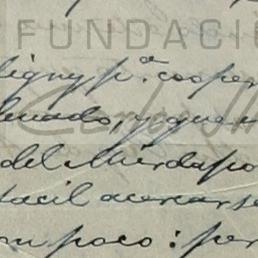 FUNDACIÓ
ligny p.ª cooper
lenado, y que
del Mierdapo
facil acercarse
un poco: per